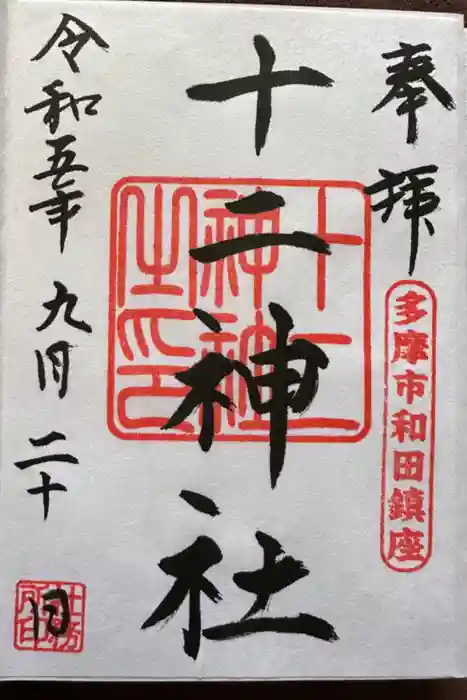 奉拝
多摩市和田鎮座
十二神社
十二
神社
之印
令和五年九月二十日
社務
所印